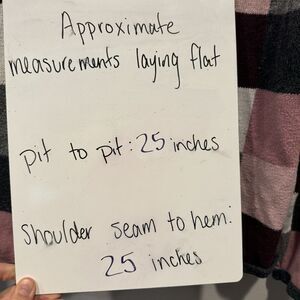 Approximate
measurements laying flat
pit to pit: 25 inches
shoulder seam to hem:
25 inches